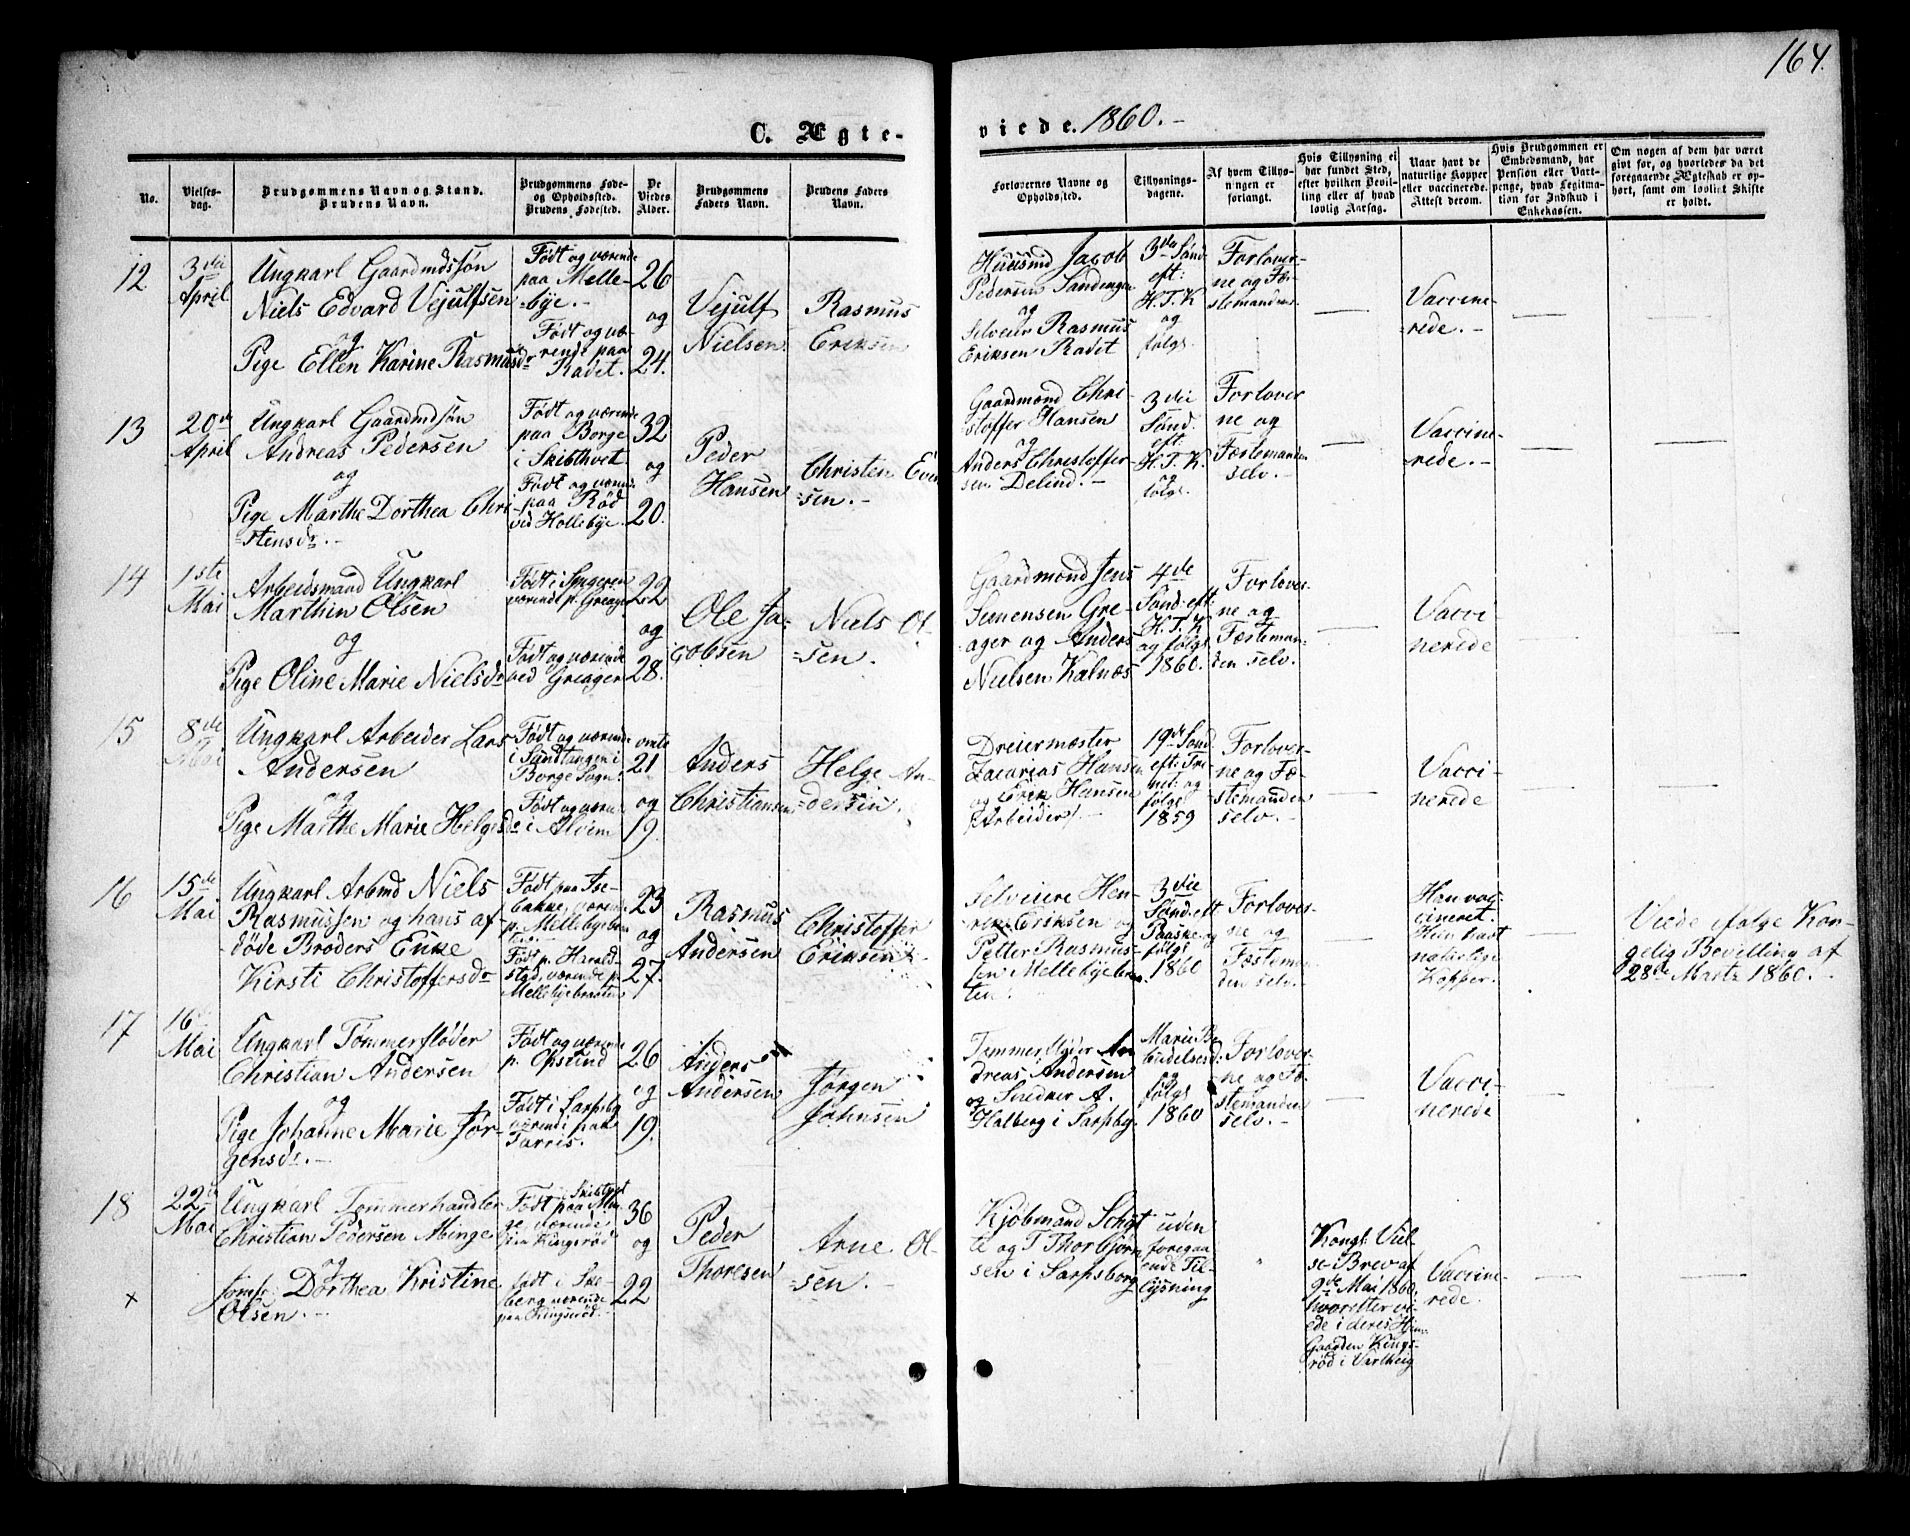 164.
C. Ægte-
viede. 1860.-
No.
Vielses-
dag.
Brudgommens Navn og Stand.
Brudens Navn.
Brudgommens Føde-
og Opholdssted.
Brudens Fødested.
De
Viedes
Alder.
Brudgommens
Faders Navn.
Brudens Faders
Navn.
Forlovernes Navne og
Opholdssted.
Tillysnings-
dagene.
Af hvem Tillys-
ningen er
forlangt.
Hvis Tillysning ei
har fundet Sted,
efter hvilken Bevil-
ling eller af hvad
lovlig Aarsag.
Naar havt de
naturlige Kopper
eller vaccinerede.
Attest derom.
Hvis Brudgommen er
Embedsmand, har
Pension eller Vart-
penge, hvad Legitima-
tion for Indskud i
Enkekassen.
Om nogen af dem har været
gift før, og hvorledes da det
foregaaende Ægteskab er op-
hørt, samt om lovligt Skifte
er holdt.
12
3die
April
Ungkarl Gaardmdssøn
Niels Edvard Vejulfsen
og
Pige Ellen Karine Rasmusdr
Født og værende
paa Melle-
bye.-
Født og væ-
rende paa
Radet.
26
og
24.
Vejulf
Nielsen
Rasmus
Eriksen
Huusmd Jacob
Pedersen Sandengen
og
Selveier Rasmus
Eriksen Radet
3die Sønd
eft:
H. T. K
og
følgs.
Forlover-
ne og Fæ-
stemanden
Vaccine-
rede.-
13
20de
April
Ungkarl Gaardmdsøn
Andreas Pedersen
og
Pige Marthe Dorthea Chri-
stensdr.-
Født og værende
paa Borge
i Skibthvet
Født og værende
paa Rød
ved Hollebye.
32
og
20.
Peder
Hansen
Christen Even
sen.-
Gaardmand Chri-
stoffer Hansen
og
Anders Christoffer-
sen Delind.-
3die
Sønd
eft:
H. T. K.
og
følgs.
Forlover
ne og
Fæstemanden
selv.-
Vaccine-
rede.-
14
1ste
Mai
Arbeidsmand Ungkarl
Marthin Olsen
og
Pige Oline Marie Nielsdr
Født i
værende p. Greager
Født og værende
ved Greager
22
og
28.
Ole Ja-
cobsen
Niels Ol-
sen.
Gaardmand Jens
Simensen Gre-
ager og Anders
Nielsen Kalnæs
4de
Sønd: eft
H. T. K
og følgs
1860.
Forlover-
ne og
Fæsteman-
den selv.
Vacci
nerede
15
8de
Mai
Ungkarl Arbeider Lars
Andersen
og
Pige Marthe Marie Helgesdr
Født og værende
i Sandtangen i
Borge Sogn.
Født og være-
de i Alvim
omtr
21
og
19.
Anders
Christiansen
Helge An-
dersen.
Dreiermester
Zacarias Hansen
og Erik Hansen
(Arbeider).-
19de Sønd
eft: Tri-
net: og
følgs
1859
Forlover-
ne og Fæ-
stemanden
selv.-
Vacci-
nerede
16
15de
Mai
Ungkarl Arbmd Niels
Rasmussen og hans af
døde Broders Enke
Kirsti Christoffersdr
Født paa Ise-
bakke, værende
p. Mellebyebraa
ten.-
Født p. Harald-
stad, værende p.
Mellebyebraaten
23
og
27.
Rasmus
Andersen
Christoffer
Eriksen
Selveiere Hen-
rik Eriksen og
Petter Rasmus-
sen Mellebyebraa-
ten.
3die
Sønd: eft
Paaske og
følgs
1860
Forlover-
ne og
Fæsteman
den selv.
Han vac-
cineret.
Hun havt
naturlige
Kopper.
Viede ifølge Kon-
gelig Bevilling af
28de Martz 1860.-
17
16
Mai
Ungkarl Tømmerfløder
Christian Andersen
og
Pige Johanne Marie Jør-
gensdr.-
Født og værende
p. Opsund
Født i Sarpsbg
værende paa
Tarris.
26
og
19.
Anders
Andersen
Jørgen
Johnsen
Tømmerfløder An
dreas Andersen
og Snedker A.
Halberg i Sarpbg.
Mariæ Be
budelsesd:
og
følgs
1860
Forlover-
ne og Fæ-
stemanden
selv.-
Vacci
nerede
18
22de
Mai
Ungkarl Tømmerhandler
Christian Pedersen Minge
og
Jomfr: Dorthea Kristine
Olsen.-
i Skibtvet
Født paa Min-
ge værende
paa Kingsrød
født i Ske-
berg værende
paa Kingsrød.-
36
og
22
Peder
Thoresen
Arne Ol-
sen.-
Kjøbmand Schyt
te og T Thorbjørn
sen i Sarpsborg
uden
foregaa
ende Til
lysning
Kongl: Viel
se-Brev af
9de Mai 1860,
hvorefter vi-
ede i deres Hjem
Gaarden Kings-
rød i Varteig
Vaccine-
rede.
x